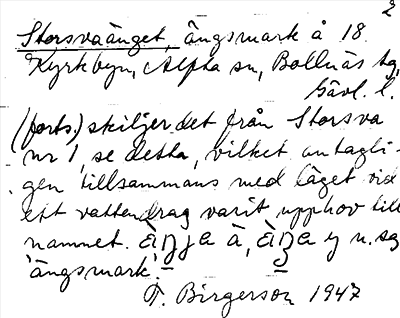 2
Storsvaänget, ängsmark å 18.
Kyrkbyn, Alfta sn, Bollnäs tg,
Gävl. l.
(forts.) skiljer det från Storsva
nr 1, se detta, vilket antagli-
gen tillsammans med läget vid
ett vattendrag varit upphov till
namnet. äŋja ä, äŋa y n. sg
'ängsmark'.
T. Birgerson 1947